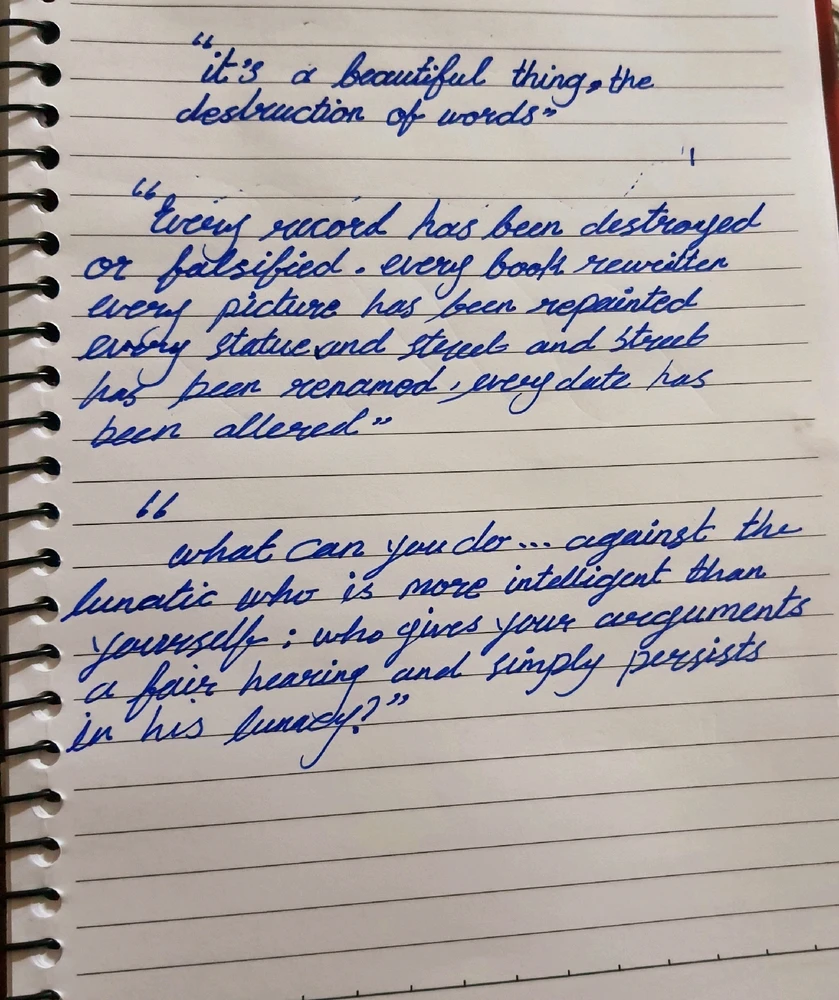 “it's a beautiful thing, the
destruction of words”
“Every record has been destroyed
or falsified. every book rewritten
every picture has been repainted
every statue and street and street
has been renamed, every date has
been altered”
“
what can you do... against the
lunatic who is more intelligent than
yourself; who gives your arguments
a fair hearing and simply persists
in his lunacy?”